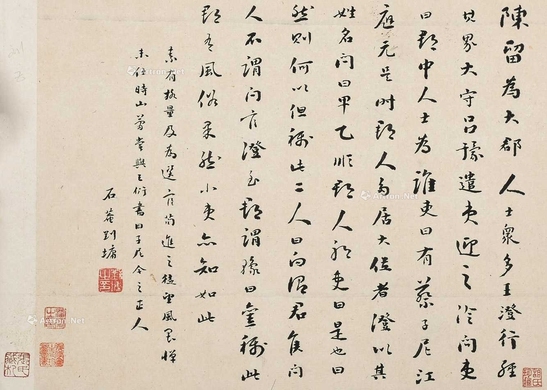 陳留為大郡人士衆多王澄行經
其界大守吕豫遣吏迎之澄問吏
曰郡中人士為誰吏曰有蔡子尼江
應元是時郡人多居大位者澄以其
姓名問曰甲乙郡人邪吏曰是也曰
然則何以但稱此二人曰向謂君侯問
人不謂問官澄至郡謂豫曰舊稱此
郡有風俗果然小吏亦知如此
素有格量及為選官苟進之徒望風畏憚
未仕時山簡嘗與王衍書曰子尼今之正人
石菴劉墉